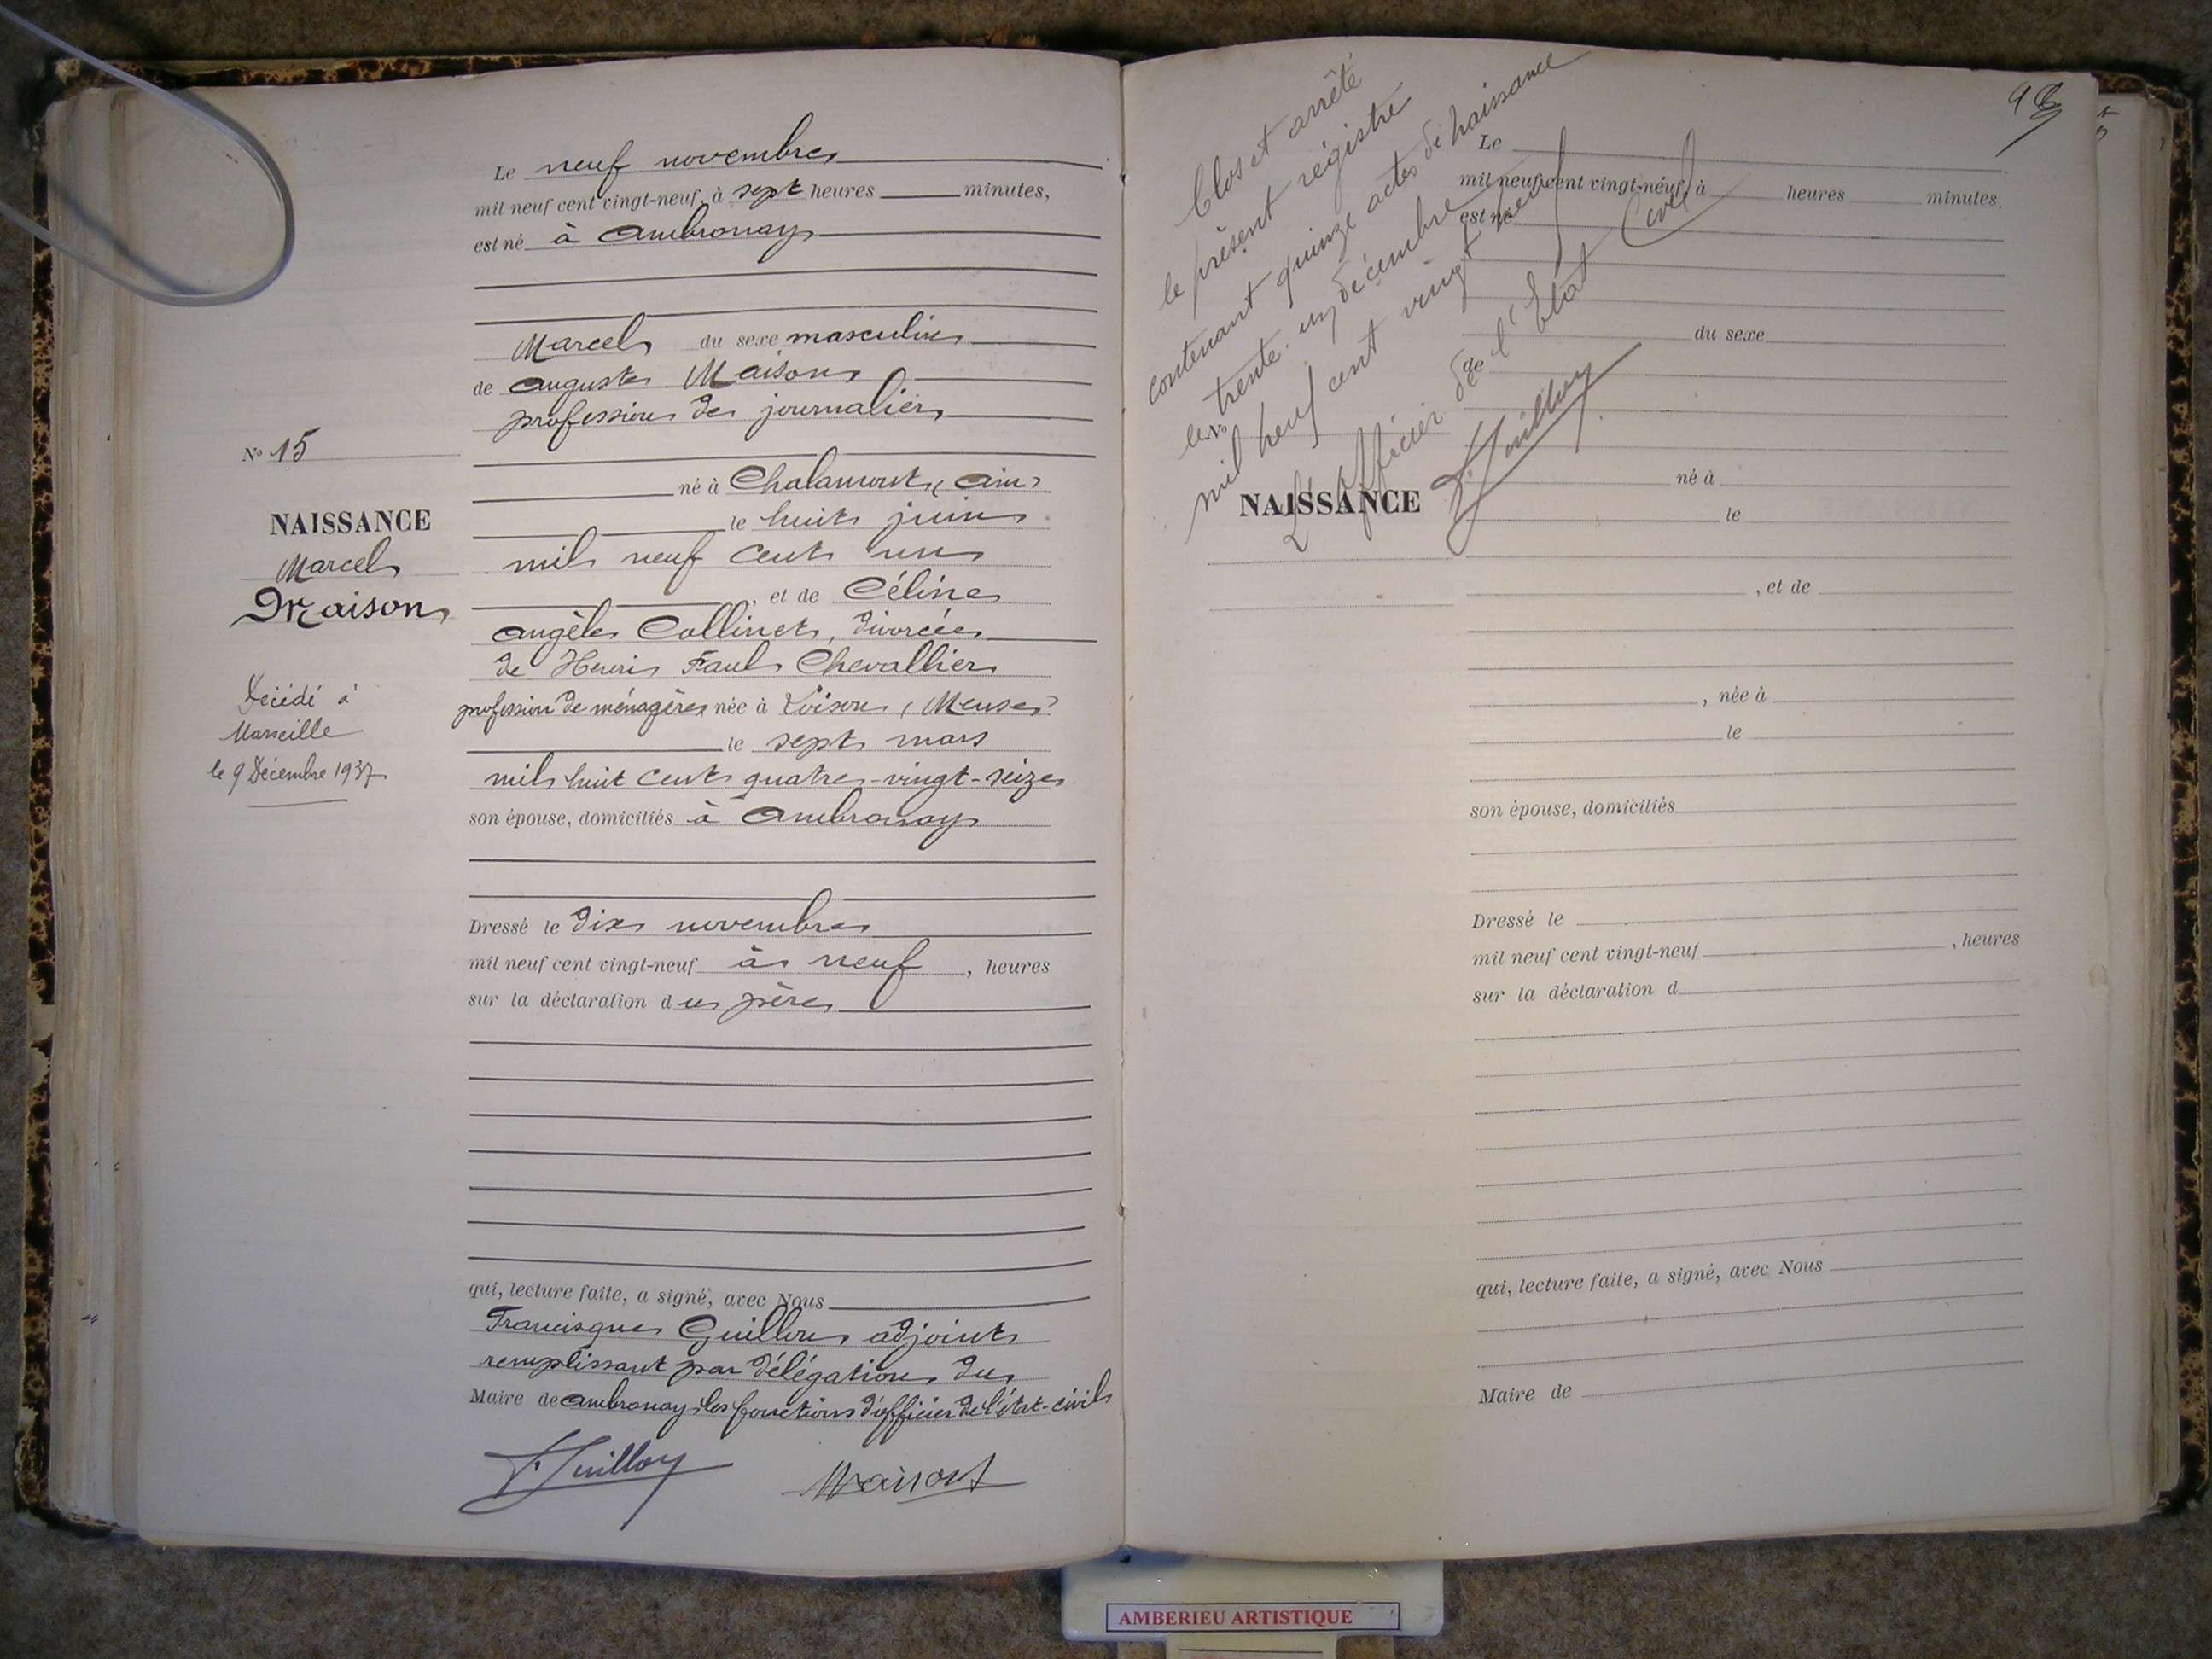 Le neuf novembre
mil neuf cent vingt-neuf, à sept heures minutes,
est né à Ambronay
Marcel du sexe masculin
de Auguste Maison
profession de journalier
né à Chalamont, (Ain)
le huit juin
mil neuf cent un
, et de Céline
Angèle Collinet, divorcée
de Henri Paul Chevallier
profession de ménagère née à Loison, (Meuse)
le sept mars
mil huit cent quatre-vingt-seize
son épouse, domiciliés à Ambronay
Dressé le dix novembre
mil neuf cent vingt-neuf à neuf, heures
sur la déclaration du père
qui, lecture faite, a signé, avec Nous
Francisque Guillou adjoint
remplissant par délégation du
Maire de Ambronay, les fonctions d'officier de l'état-civil
F. Guilloy
Maison
No 15
NAISSANCE
Marcel
Maison
Décédé à
Marseille
le 9 Décembre 1937
Clos et arrêté
le présent régistre
contenant quinze actes de naissance
le trente-un décembre
mil neuf cent vingt neuf
L'officier de l'Etat Civil
F. Guilloy
No
NAISSANCE
Le
mil neuf cent vingt-neuf, à heures minutes.
est né
du sexe
de
né à
le
, et de
, née à
le
son épouse, domiciliés
Dressé le
mil neuf cent vingt-neuf , heures
sur la déclaration d
qui, lecture faite, a signé, avec Nous
Maire de
AMBERIEU ARTISTIQUE